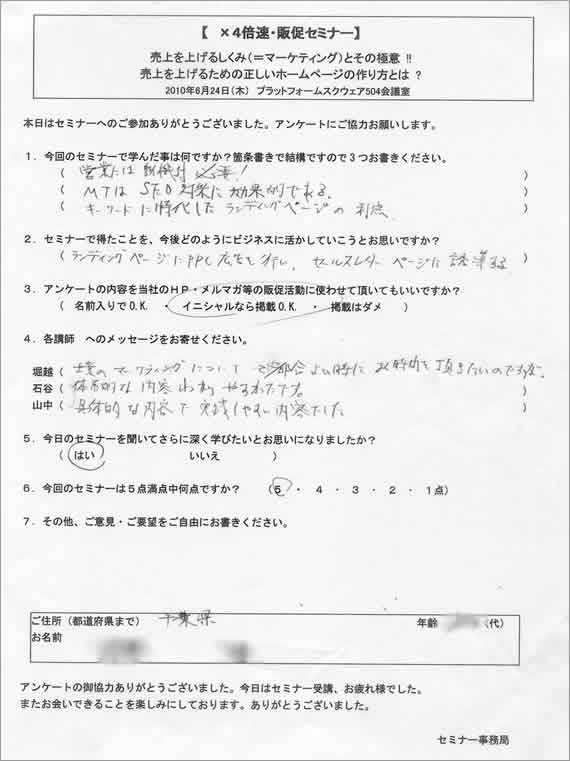 【 ×4倍速・販促セミナー】
売上を上げるしくみ(=マーケティング)とその極意 !!
売上を上げるための正しいホームページの作り方とは ?
2010年6月24日(木) プラットフォームスクウェア504会議室
本日はセミナーへのご参加ありがとうございました。アンケートにご協力お願いします。
1. 今回のセミナーで学んだ事は何ですか?箇条書きで結構ですので3つお書きください。
( 営業には 必要! )
( MTは SEO対策に効果的である。 )
( キーワードに特化した ランディングページの 利点. )
2. セミナーで得たことを、今後どのようにビジネスに活かしていこうとお思いですか?
( ランディングページにPPC広告を 行い、セールスレターページに誘導する )
3. アンケートの内容を当社のHP・メルマガ等の販促活動に使わせて頂いてもいいですか?
( 名前入りでO.K. ・ イニシャルなら掲載O.K. ・ 掲載はダメ )
4. 各講師 へのメッセージをお寄せください。
堀越 ( マーケティングについて 都合よい時に お時間を頂きたいのですが。
石谷 ( 具体的な内容 )
山中 ( 具体的な内容で 実践しやすい内容でした )
5. 今日のセミナーを聞いてさらに深く学びたいとお思いになりましたか?
( はい いいえ )
6. 今回のセミナーは5点満点中何点ですか? (5 ・ 4 ・ 3 ・ 2 ・ 1点)
7. その他、ご意見・ご要望をご自由にお書きください。
ご住所(都道府県まで) 千葉県 年齢 (代)
お名前
アンケートの御協力ありがとうございました。今日はセミナー受講、お疲れ様でした。
またお会いできることを楽しみにしております。ありがとうございました。
セミナー事務局